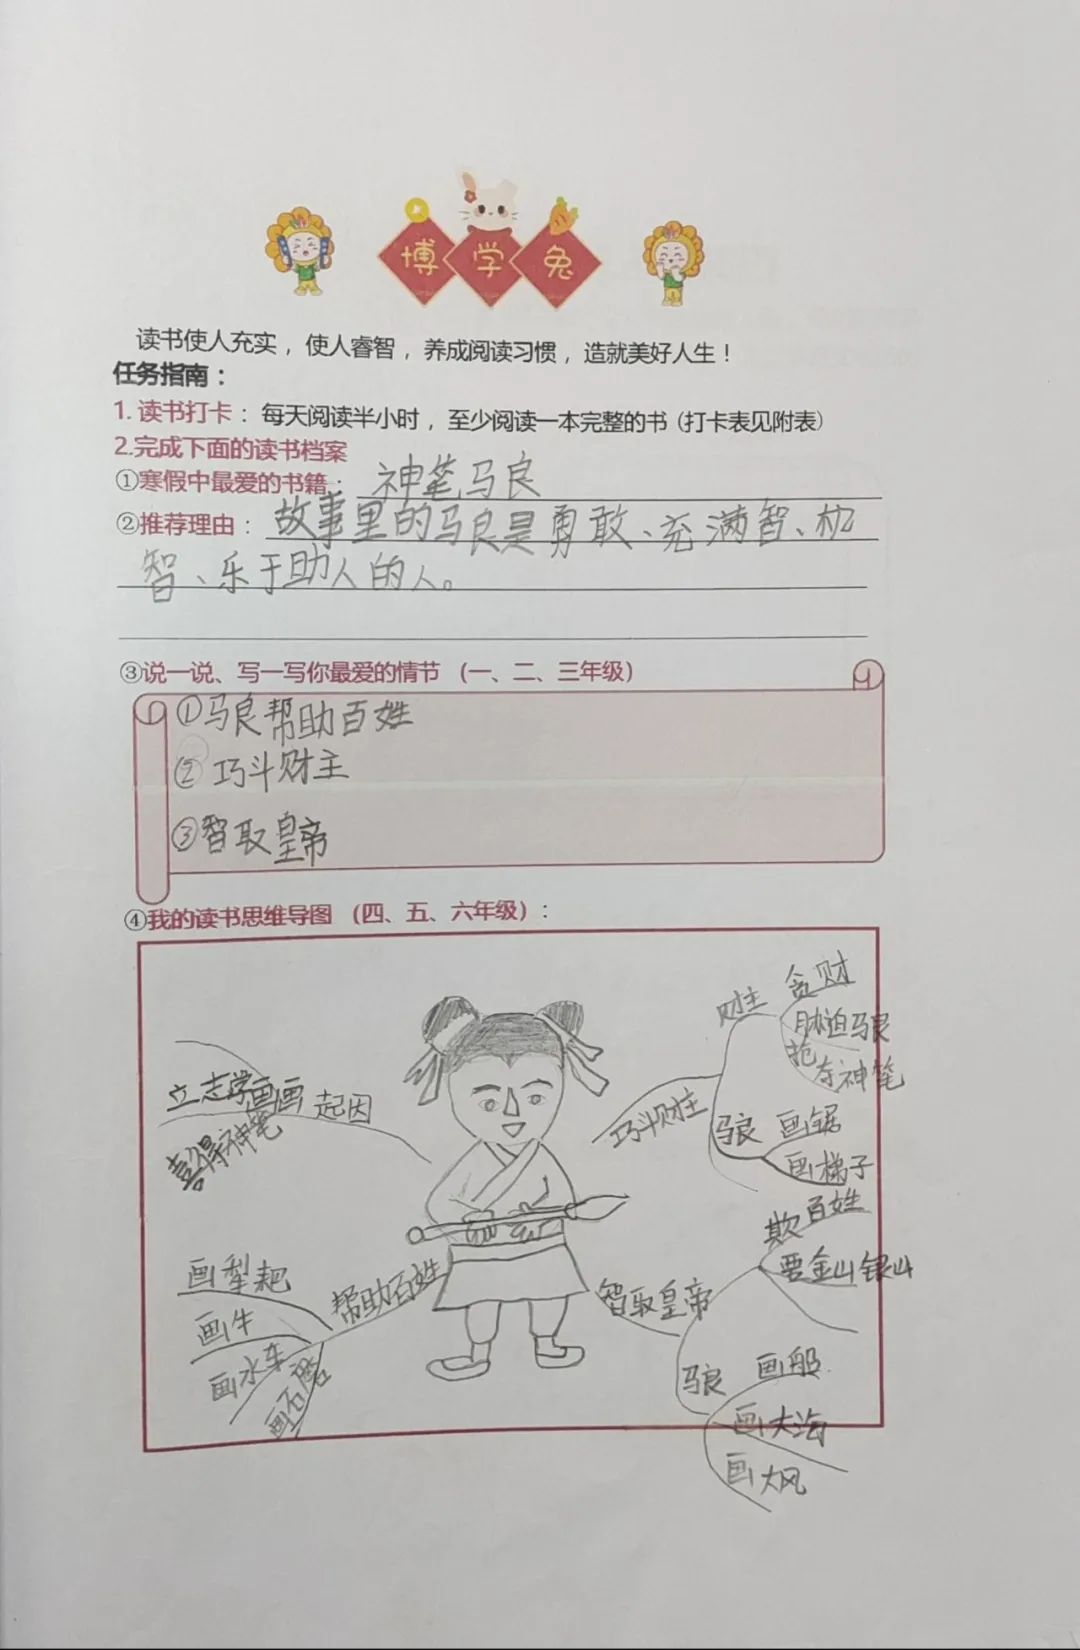 博学兔
读书使人充实，使人睿智，养成阅读习惯，造就美好人生！
任务指南：
1. 读书打卡：每天阅读半小时，至少阅读一本完整的书 (打卡表见附表)
2.完成下面的读书档案
①寒假中最爱的书籍：神笔马良
②推荐理由：故事里的马良是勇敢、充满智、机
智、乐于助人的人。
③说一说、写一写你最爱的情节（一、二、三年级）
①马良帮助百姓
②巧斗财主
③智取皇帝
④我的读书思维导图（四、五、六年级）：
起因
立志学画画
喜得神笔
帮助百姓
画犁耙
画牛
画水车
画石磨
巧斗财主
财主
贪财
胁迫马良
抢夺神笔
马良
画锯
画梯子
智取皇帝
欺百姓
要金山银山
马良
画船
画大海
画大风